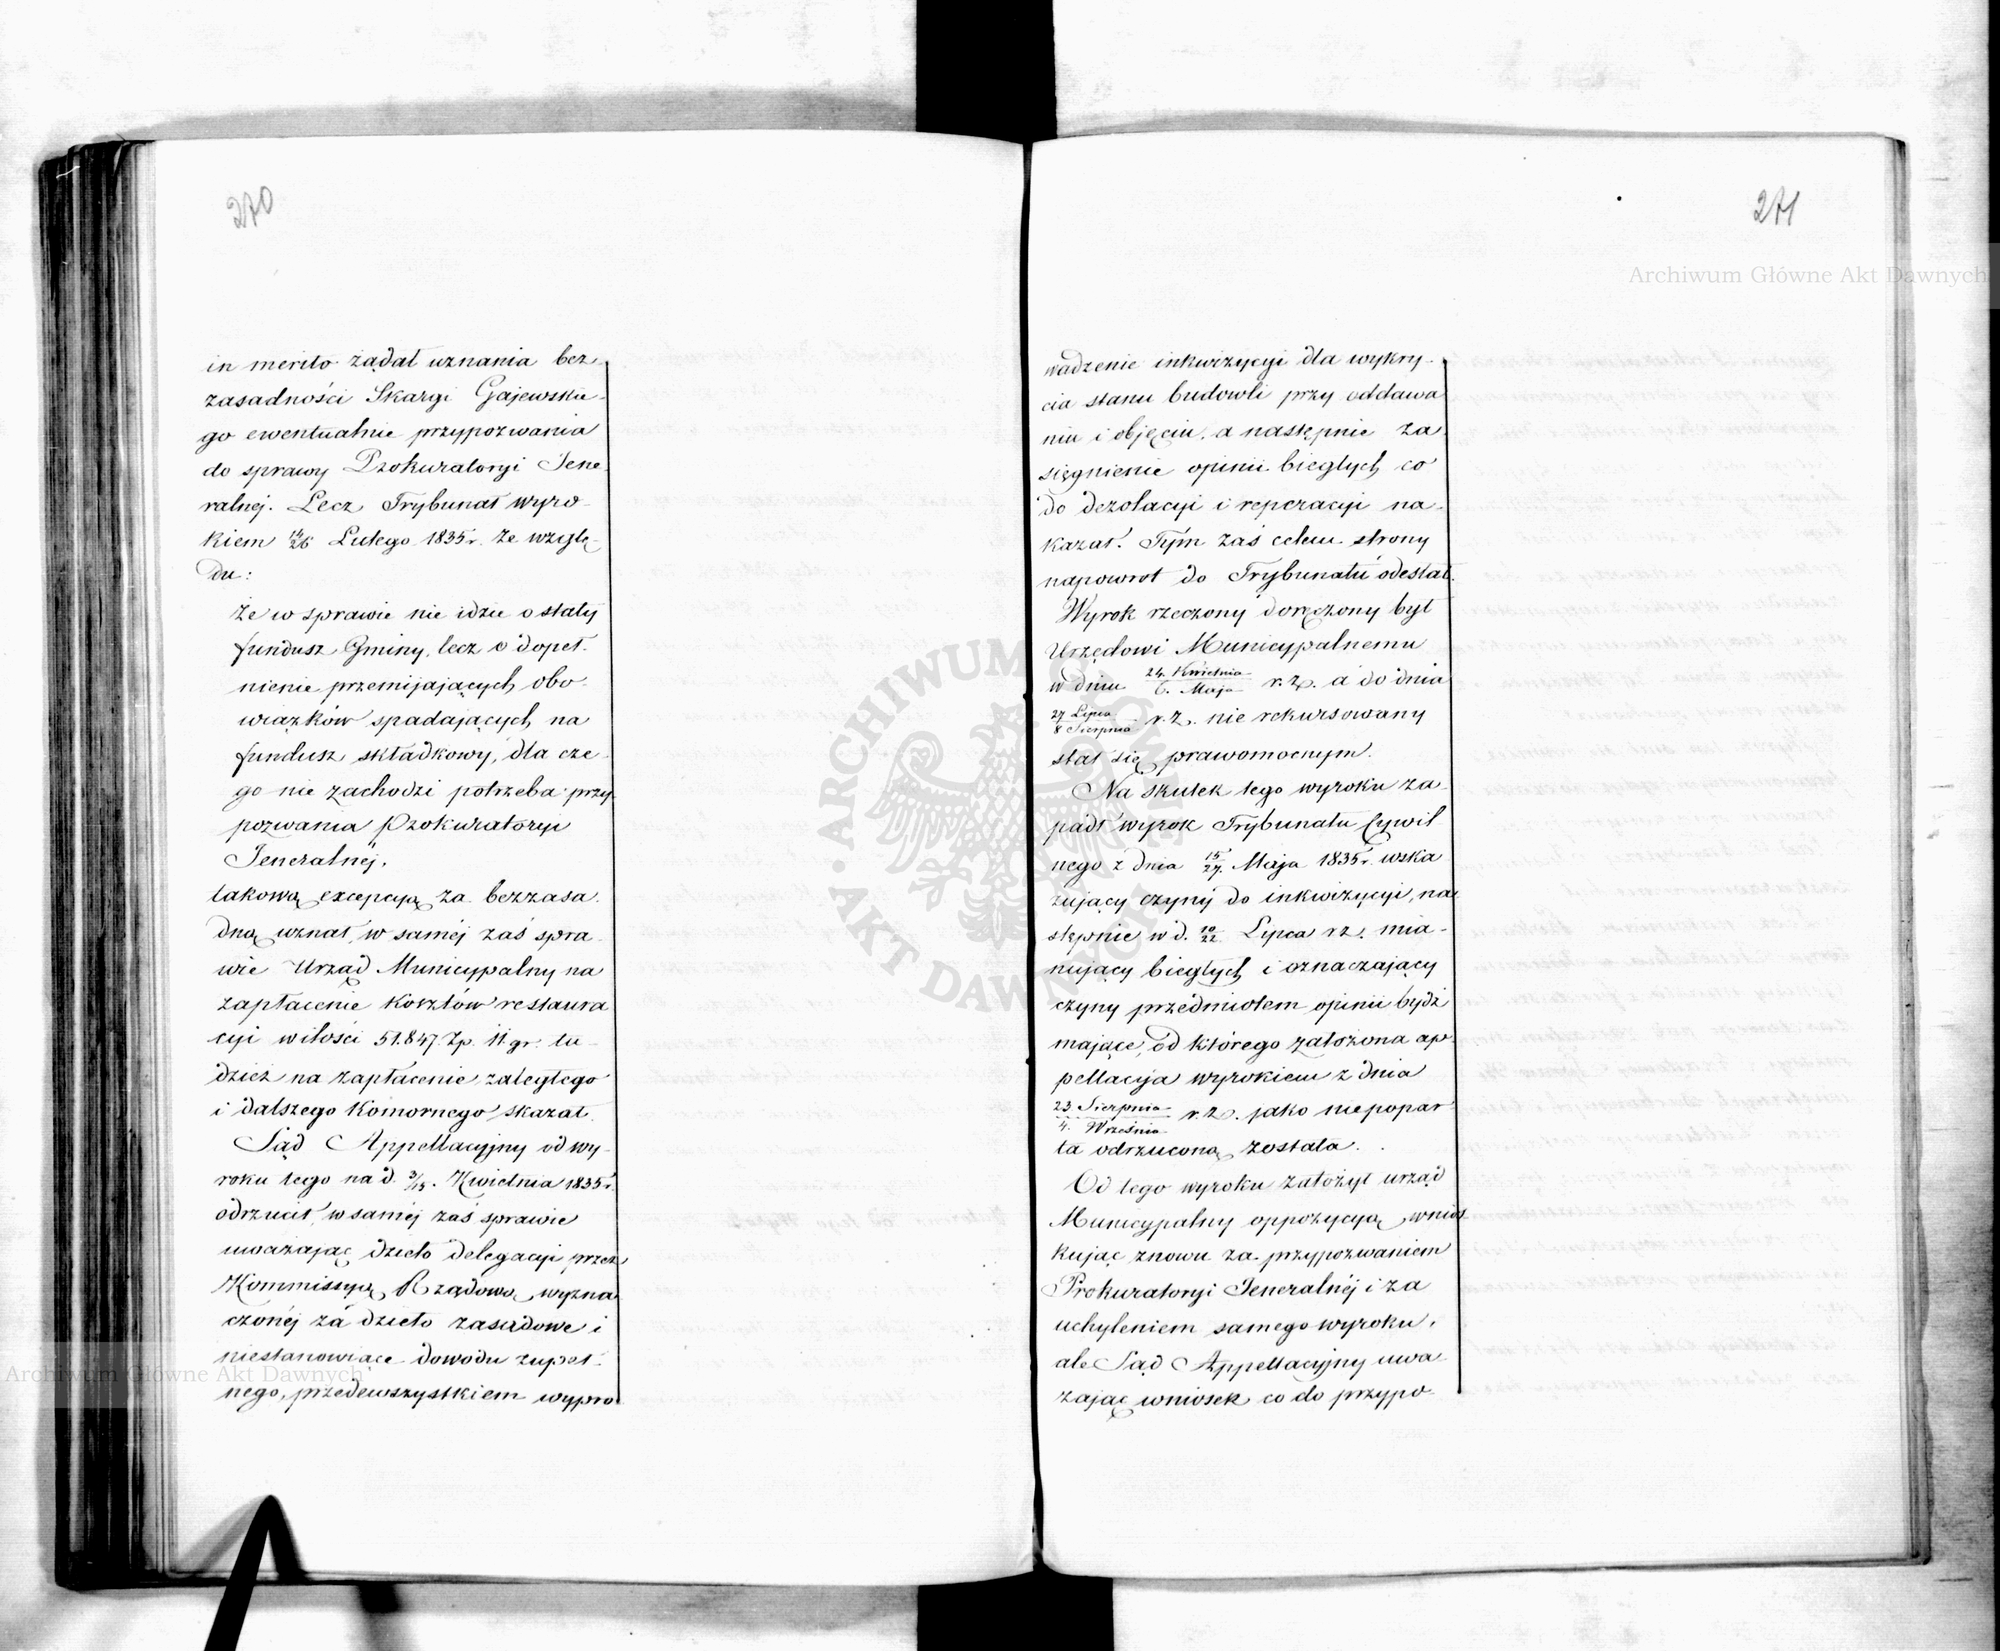 270
in merito żądał uznania bez-
zasadności Skargi Gajewskie-
go ewentualnie przypozwania
do sprawy Prokuratoryi Jene-
ralnej. Lecz Trybunał wyro-
kiem 14/26 Lutego 1835 r. ze wzglę-
du:
że w sprawie nie idzie o stały
fundusz Gminy, lecz o dopeł-
nienie przemijających obo-
wiązków spadających na
fundusz składkowy, dla cze-
go nie zachodzi potrzeba przy-
pozwania Prokuratoryi
Jeneralnéj.
takową excepcyą za bezzasa-
dną uznał, w saméj zaś spra-
wie Urząd Municypalny na
zapłacenie kosztów restaura
cyi w ilości 51.847 Zp. 11 gr. tu-
dzież na zapłacenie zaległego
i dalszego Komornego skazał.
Sąd Appellacyjny od wy-
roku tego na d. 3/15. Kwietnia 1835 r.
odrzucił, w saméj zaś sprawie
uważając dzieło delegacyi przez
Kommissyą Rządową wyzna
czonéj za dzieło zasadowe i
niestanowiące dowodu zupeł-
nego, przedewszystkiem wypro
271
wadzenie inkwizycyi dla wykry-
cia stanu budowli przy oddawa
niu i objęciu, a następnie za-
sięgnienie opinii biegłych co
do dezolacyi i reperacyi na-
kazał. Tym zaś celem strony
napowrot do Trybunału odesłał.
Wyrok rzeczony doręczony był
Urzędowi Municypalnemu
w dniu 24. Kwietnia/6. Maja r. z. a do dnia
27 Lipca/8 Sierpnia r. z. nie rekursowany
stał się prawomocnym.
Na skutek tego wyroku za-
padł wyrok Trybunału Cywil
nego z dnia 15/27. Maja 1835 r. wska
zujący czyny do inkwizycyi, na
stępnie w d. 10/22 Lipca r z. mia-
nujący biegłych i oznaczający
czyny przedmiotem opinii bydź
mające, od którego założona ap-
pellacyja wyrokiem z dnia
23. Sierpnia/4. Września r. z. jako niepopar
ta odrzuconą została.
Od tego wyroku założył urząd
Municypalny oppozycyą, wnios
kując znowu za przypozwaniem
Prokuratoryi Jeneralnéj i za
uchyleniem samego wyroku,
ale Sąd Appellacyjny uwa
żając wniosek co do przypo-
Archiwum Główne Akt Dawnych
Archiwum Główne Akt Dawnych